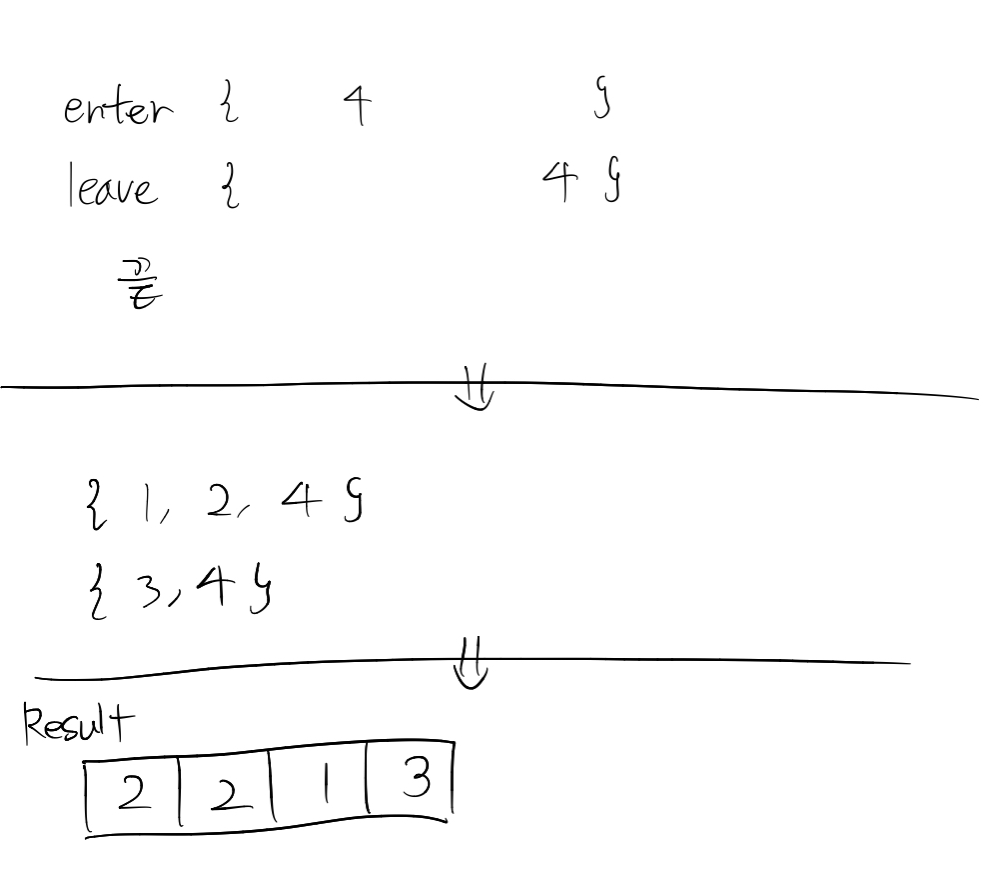 enter { 4 }
leave { 4 }
끝
{ 1, 2, 4 }
{ 3, 4 }
Result
2 2 1 3